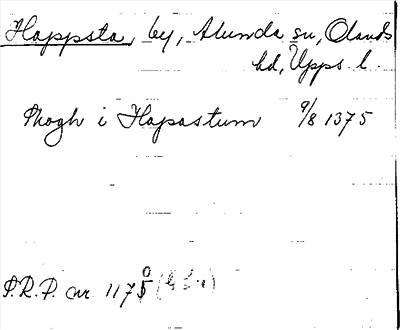 Happsta, by, Alunda sn, Olands
hd, Upps. l.
Mogh i Hapastum 9/8 1375
P.R.P. nr 1170